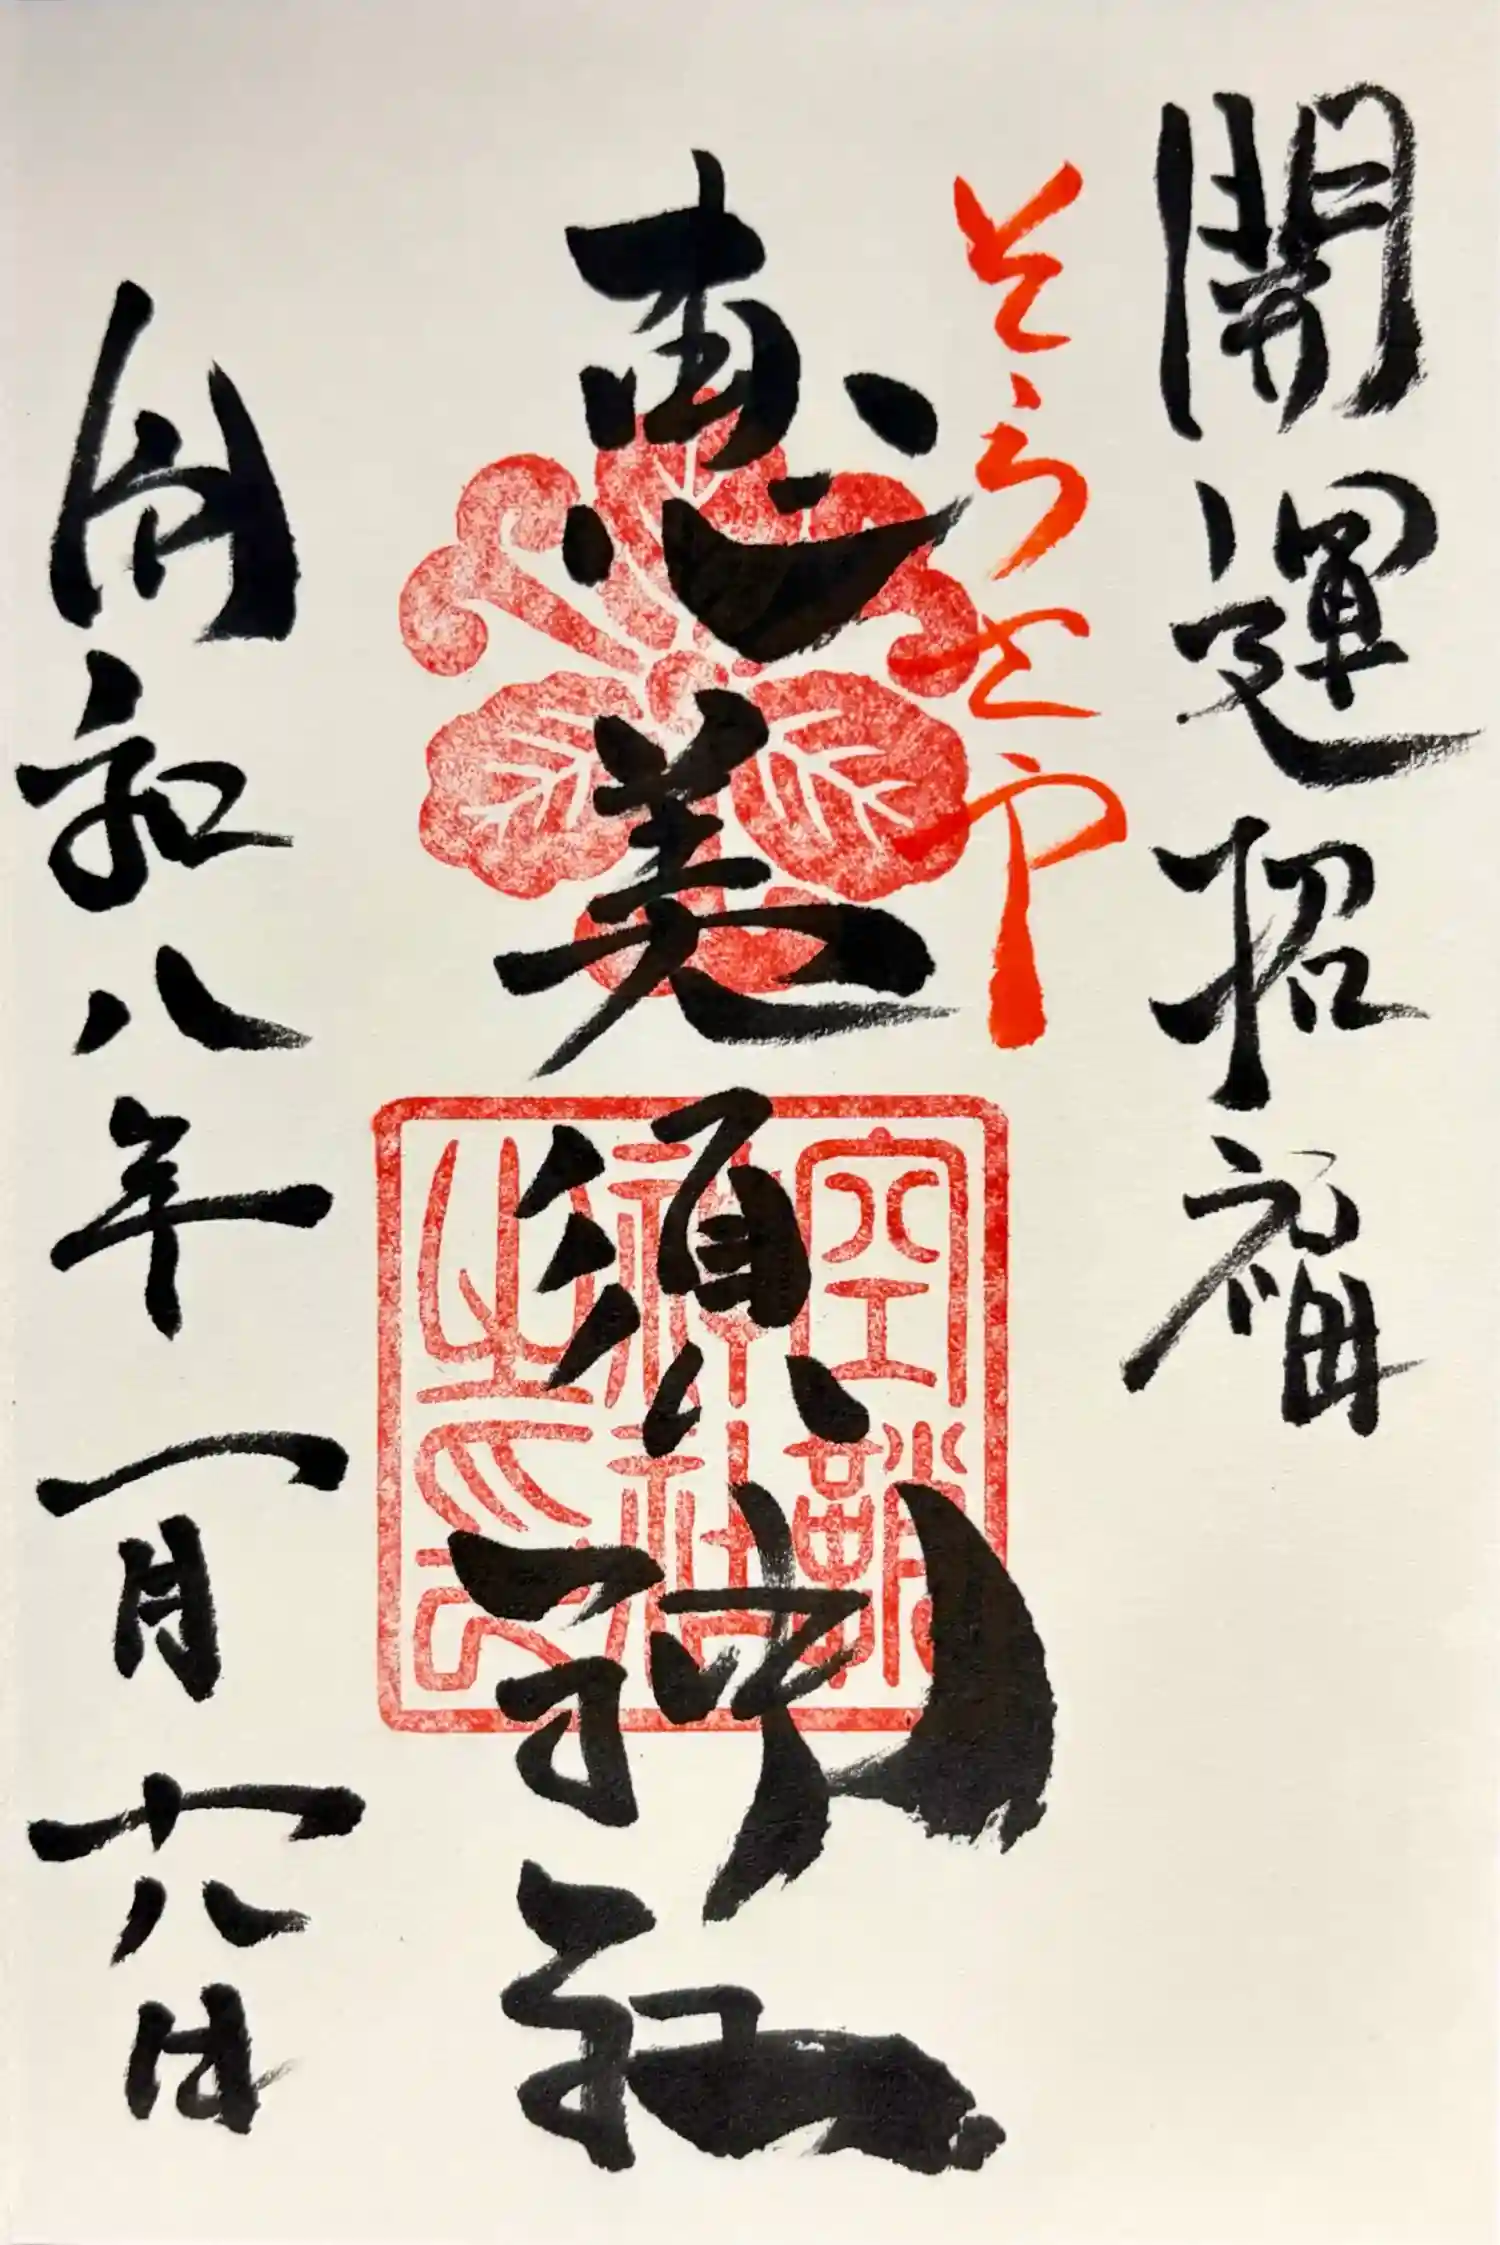 開運招福
そらさや
恵美須神社
令和八年一月十八日
空鞘
神社
之印